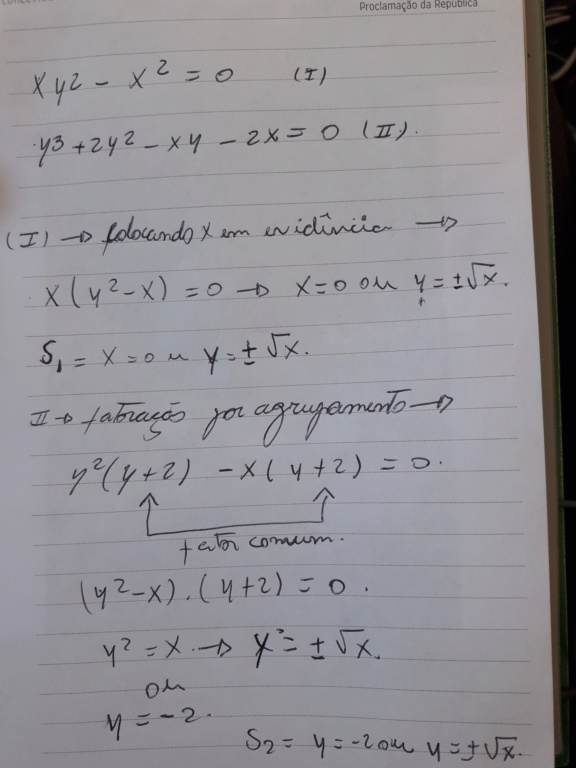 Proclamação da República
xy² - x² = 0 (I)
y³ + 2y² - xy - 2x = 0 (II).
(I) → colocando x em evidência →
x(y² - x) = 0 → x = 0 ou y = ±√x.
S₁ = x = 0 ou y = ±√x.
II → fatoração por agrupamento →
y²(y+2) - x(y+2) = 0.
fator comum.
(y² - x).(y+2) = 0.
y² = x → y = ±√x.
ou
y = -2.
S₂ = y = -2 ou y = ±√x.